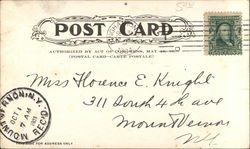 POST CARD
AUTHORIZED BY ACT OF CONGRESS, MAY 19,
(POSTAL CARD—CARTE POSTALE)
MOUNT VERNON, N.Y.
REC'D.
Miss Florence E. Knight
311 South 4th ave
Mount Vernon
N.Y.
FOR ADDRESS ONLY